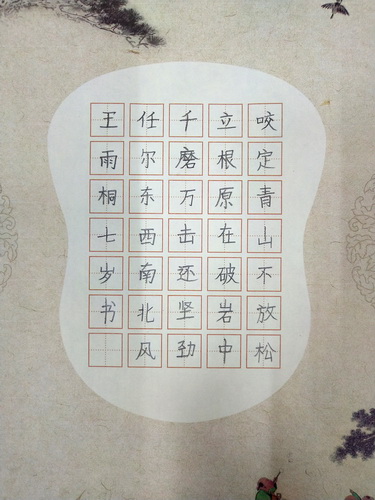 咬定青山不放松
立根原在破岩中
千磨万击还坚劲
任尔东西南北风
王雨桐七岁书